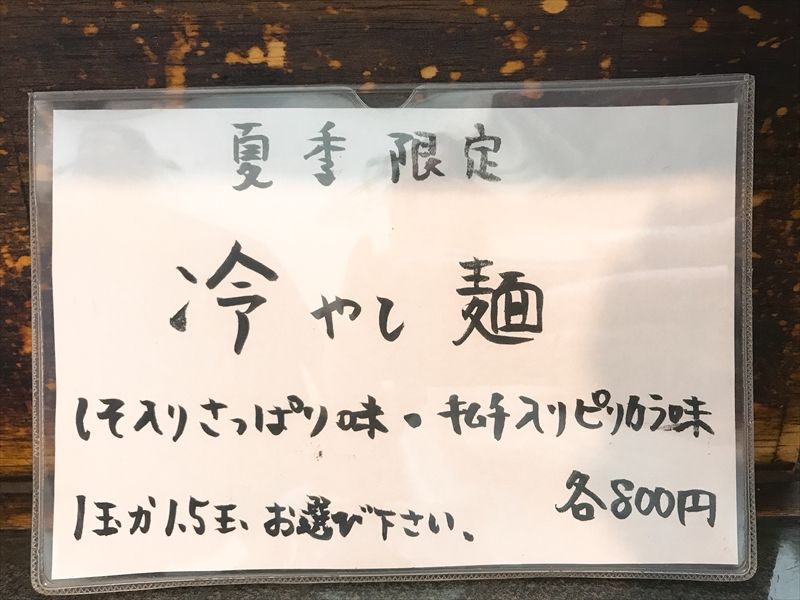 夏季限定
冷やし麺
しそ入りさっぱり味・キムチ入りピリカラ味
各800円
1玉か1.5玉、お選び下さい。